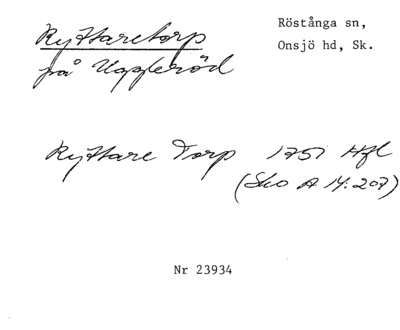 Ryttaretorp
på Uggleröd
Röstånga sn,
Onsjö hd, Sk.
Ryttare Torp 1751 Hfl
(Sko A 14:207)
Nr 23934